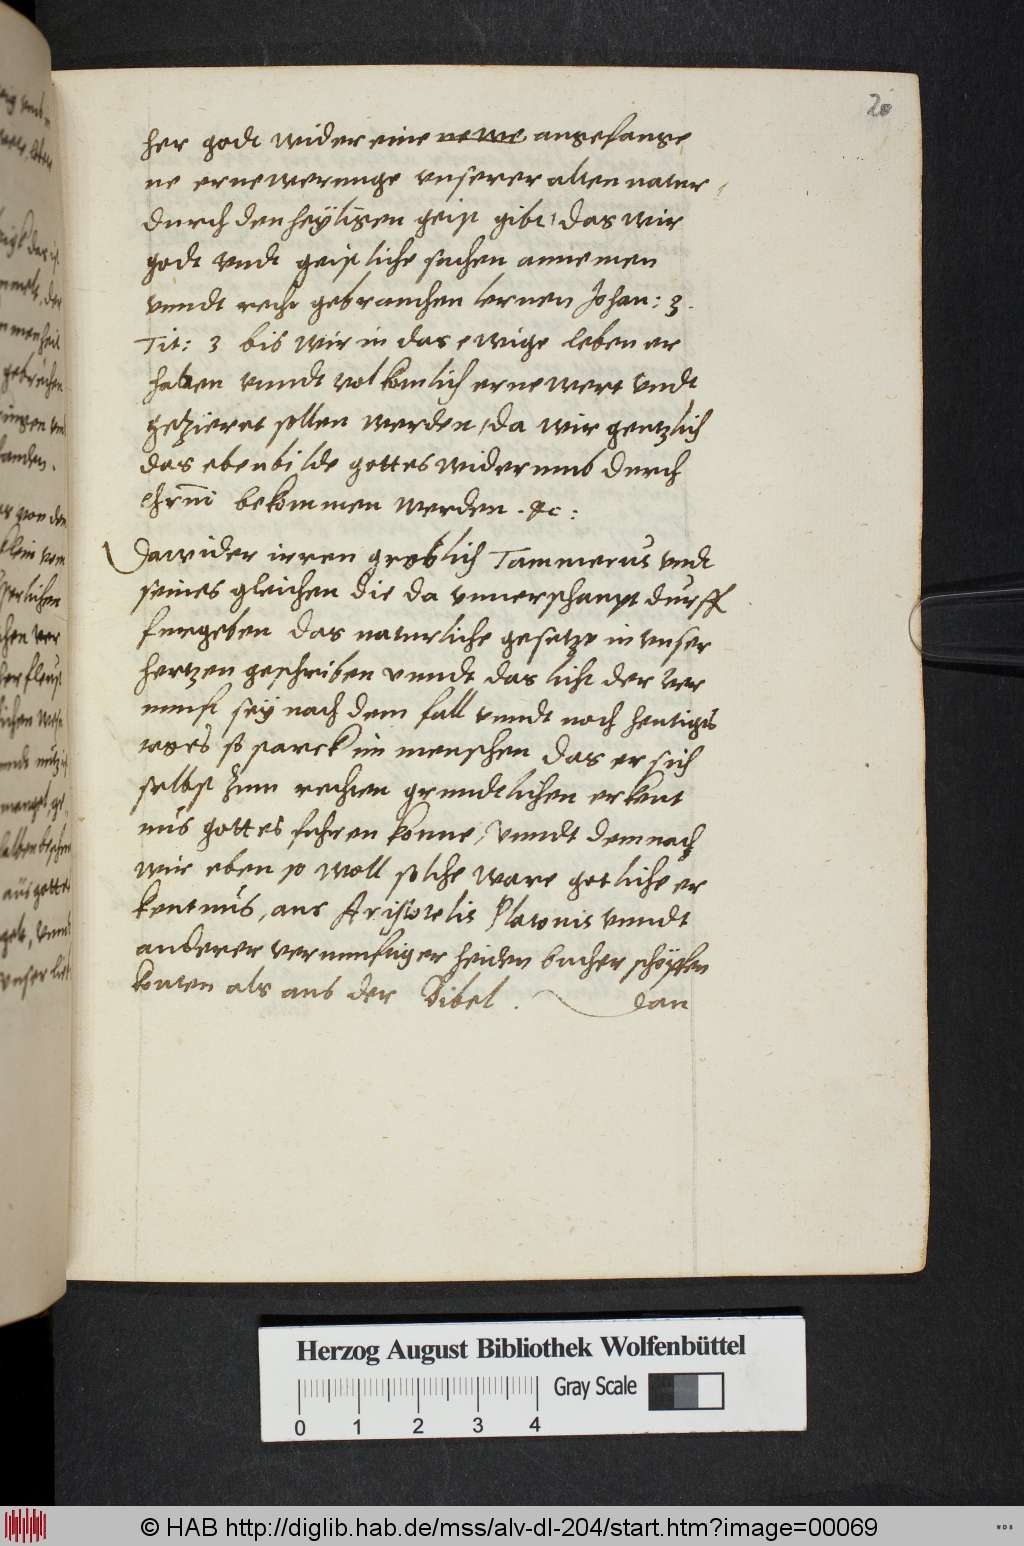 20
her godt wider eine newe angefange
ne ernewerunge vnserer alten natur
durch den heÿligen geist gibt, das wir
godt vndt geistliche sachen annemen
vnndt recht gebrauchen lernen Johan: 3.
Tit: 3 bis wir in das ewige leben er
haben vnndt volkomlich ernewert vndt
getzieret sollen werden, da wir gentzlich
das ebenbilde gottes widerumb durch
chrm̅ bekommen werden. &c:
Dawider irren groblich Tammerus vndt
seines gleichen die da vnuerschampt durff
furgeben das naturliche gesetze in vnser
hertzen geschriben vnndt das licht der ver
nunft seÿ nach dem fall vnndt noch heutiges
tages so starck im menschen das er sich
selbst zum rechten grundtlichen erkent
nus gottes fuhren konne, vnndt demnach
wir eben so woll solche ware gotliche er
kentnus, aus Aristotelis Platonis vnndt
anderer vernunftiger heiden bucher schöpffen
konten als aus der Bibel. dan
Herzog August Bibliothek Wolfenbüttel
0 1 2 3 4
Gray Scale
© HAB http://diglib.hab.de/mss/alv-dl-204/start.htm?image=00069